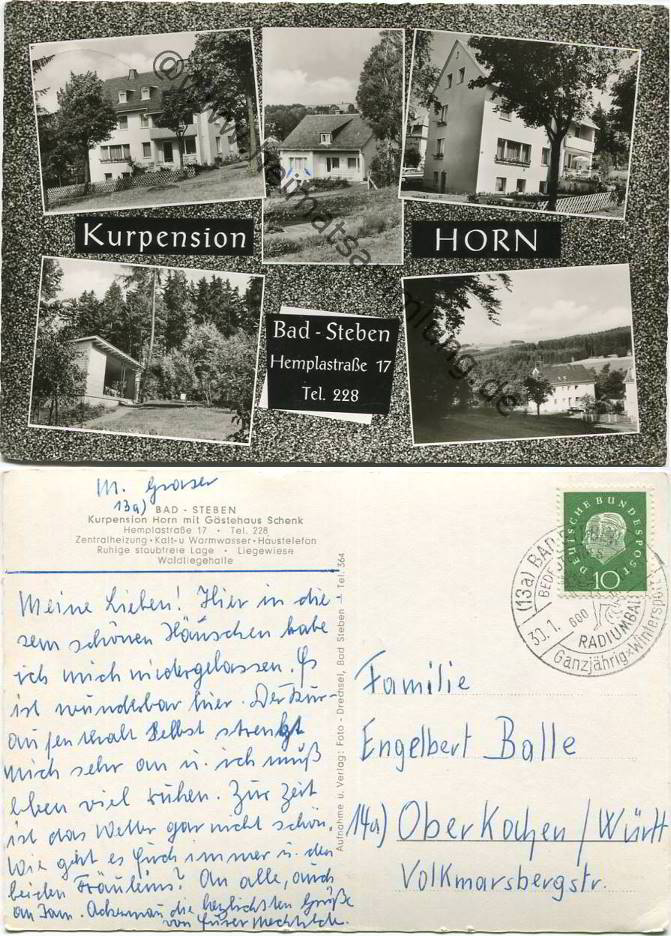 © www.heimatsammlung.de
Kurpension HORN
Bad - Steben
Hemplastraße 17
Tel. 228
M. Graser
13a) BAD - STEBEN
Kurpension Horn mit Gästehaus Schenk
Hemplastraße 17 • Tel. 228
Zentralheizung • Kalt- u Warmwasser • Haustelefon
Ruhige staubfreie Lage • Liegewiese
Waldliegehalle
Meine Lieben! Hier in die-
sem schönen Häuschen habe
ich mich niedergelassen. Es
ist wunderbar hier. Der Kur-
aufenthalt selbst strengt
mich sehr an u. ich muß
eben viel ruhen. Zur Zeit
ist das Wetter gar nicht schön.
Wie geht es Euch immer u. den
beiden Fräuleins? An alle, auch
an Fam. Ackermann die herzlichsten Grüße
von Eurer Mechthilde.
Aufnahme u. Verlag: Foto - Drechsel, Bad Steben - Tel. 364
DEUTSCHE BUNDESPOST
10
(13a) BAD
30.1.
RADIUMBAD
Ganzjährig • Wintersport
Familie
Engelbert Balle
14a) Oberkochen / Württ
Volkmarsbergstr.